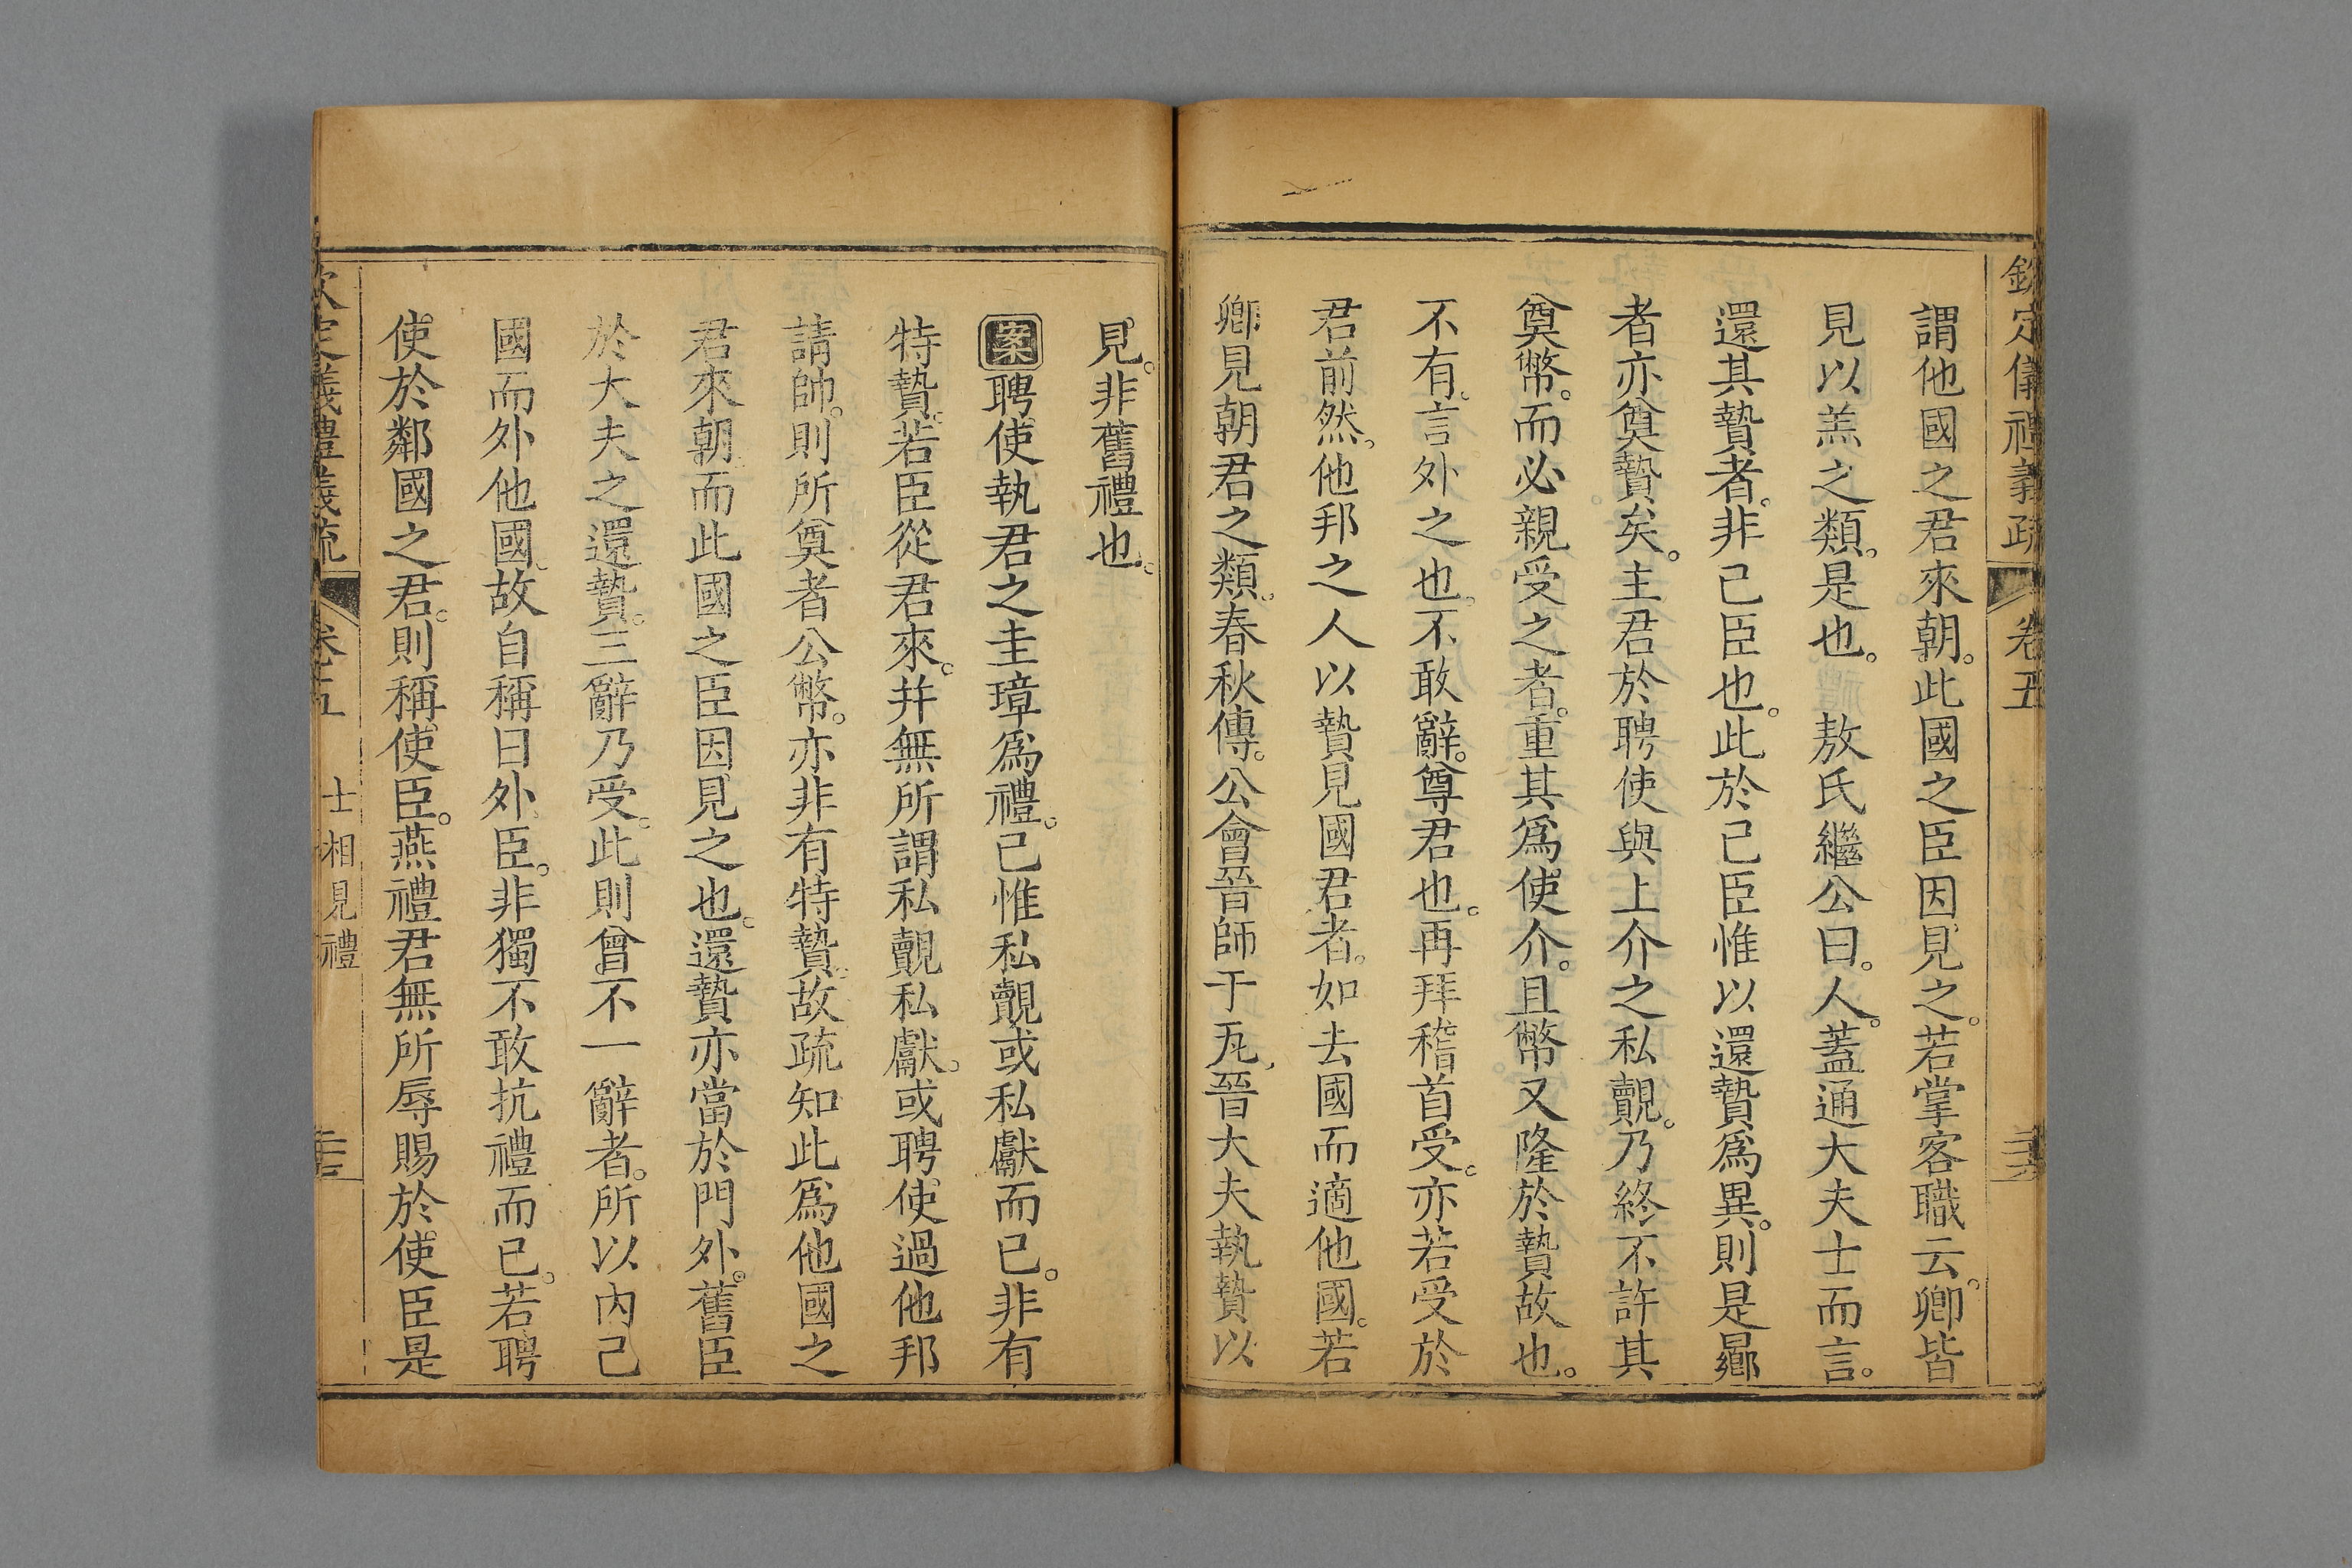 欽定儀禮義疏 卷五
謂他國之君來朝。此國之臣因見之。若掌客職云。卿皆
見以羔之類。是也。 敖氏繼公曰。人。蓋通大夫士而言。
還其贄者。非己臣也。此於己臣惟以還贄爲異。則是曏
者亦奠贄矣。主君於聘使與上介之私覿。乃終不許其
奠幣。而必親受之者。重其爲使介。且幣又隆於贄故也。
不有。言外之也。不敢辭。尊君也。再拜稽首受。亦若受於
君前然。他邦之人以贄見國君者。如去國而適他國。若
卿見朝君之類。春秋傳。公會晉師于瓦、晉大夫執贄以
見。非舊禮也。
案聘使執君之圭璋爲禮。己惟私覿或私獻而已。非有
特贄。若臣從君來。并無所謂私覿私獻。或聘使過他邦
請帥。則所奠者公幣。亦非有特贄。故疏知此爲他國之
君來朝而此國之臣因見之也。還贄亦當於門外。舊臣
於大夫之還贄。三辭乃受。此則曾不一辭者。所以內己
國而外他國。故自稱曰外臣。非獨不敢抗禮而已。若聘
使於鄰國之君。則稱使臣。燕禮君無所辱賜於使臣是
欽定儀禮義疏 卷五 士相見禮